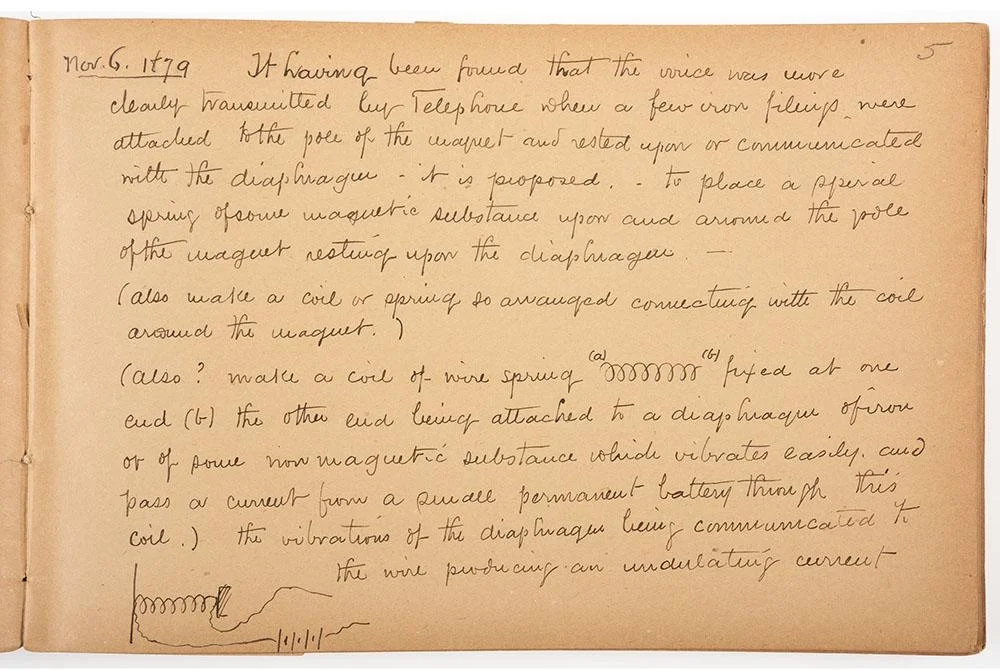 5
Nov. 6. 1879 It having been found that the voice was more
clearly transmitted by Telephone when a few iron filings were
attached to the pole of the magnet and rested upon or communicated
with the diaphragm - it is proposed. - to place a speral
spring of some magnetic substance upon and around the pole
of the magnet resting upon the diaphragm. —
(also make a coil or spring so arranged connecting with the coil
around the magnet.)
(also? make a coil of wire spring (a) (b) fixed at one
end (b) the other end being attached to a diaphragm of iron
or of some non magnetic substance which vibrates easily. and
pass a current from a small permanent battery through this
coil.) the vibrations of the diaphragm being communicated to
the wire producing an undulating current